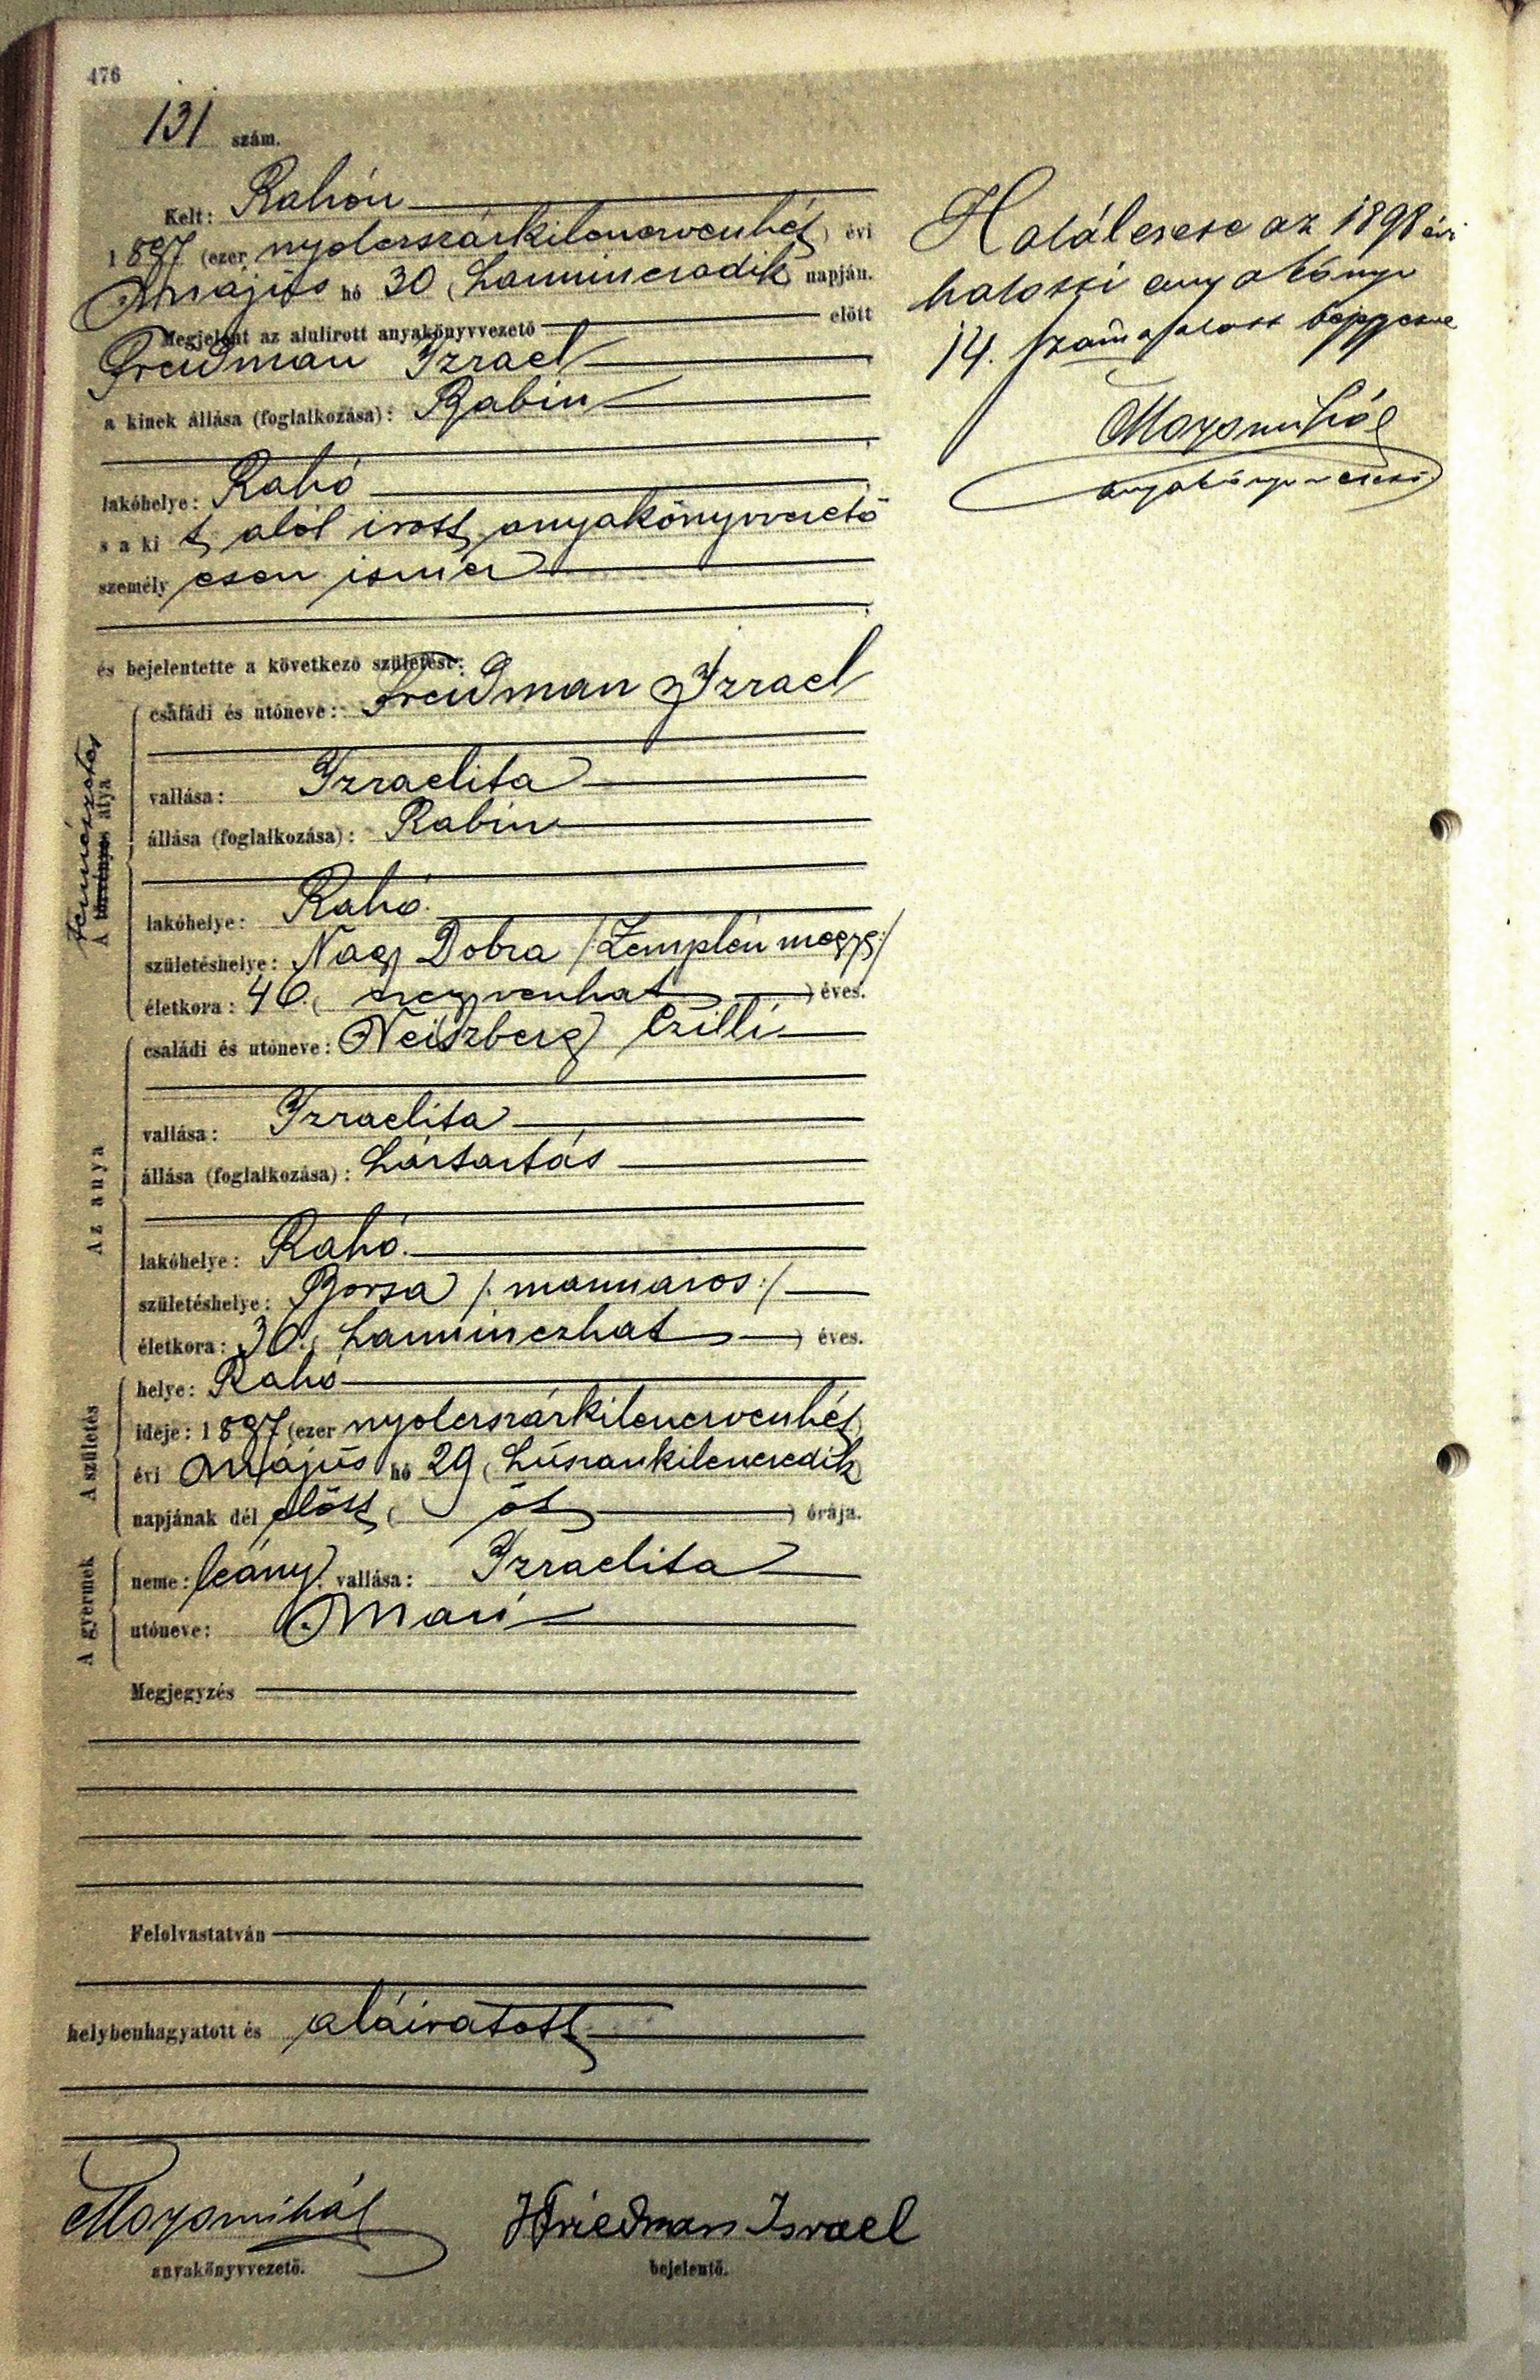 476
131 szám.
Kelt: Rahón
1897 (ezer nyolczszázkilenczvenhét) évi
Május hó 30 (harminczadik) napján.
Megjelent az alulirott anyakönyvvezető előtt
Freidman Izrael
a kinek állása (foglalkozása): Rabin
lakóhelye: Rahó
s a ki t, alól irott anyakönyvvezető
személy esen ismer
és bejelentette a következő születést:
természetes
A törvényes atya
családi és utóneve: Freidman Izrael
vallása: Izraelita
állása (foglalkozása): Rabin
lakóhelye: Rahó
születéshelye: Nagy Dobra /Zemplén megye/
életkora: 46. (negyvenhat) éves.
Az anya
családi és utóneve: Neiszberg Czilli
vallása: Izraelita
állása (foglalkozása): háztartás
lakóhelye: Rahó
születéshelye: Borsa /: marmaros :/
életkora: 36. (harminczhat) éves.
A születés
helye: Rahó
ideje: 1897 (ezer nyolczszázkilenczvenhét)
évi Május hó 29 (húszankilenczedik)
napjának dél előtt (öt) órája.
A gyermek
neme: leány vallása: Izraelita
utóneve: Mari
Megjegyzés
Felolvastatván
helybenhagyatott és aláiratott
Moysmihál
anyakönyvvezető.
Friedman Israel
bejelentő.
Halálesese az 1898 évi
halotti anyakönyv
14. szám alatt
Moysmihál
anyakönyvvezető